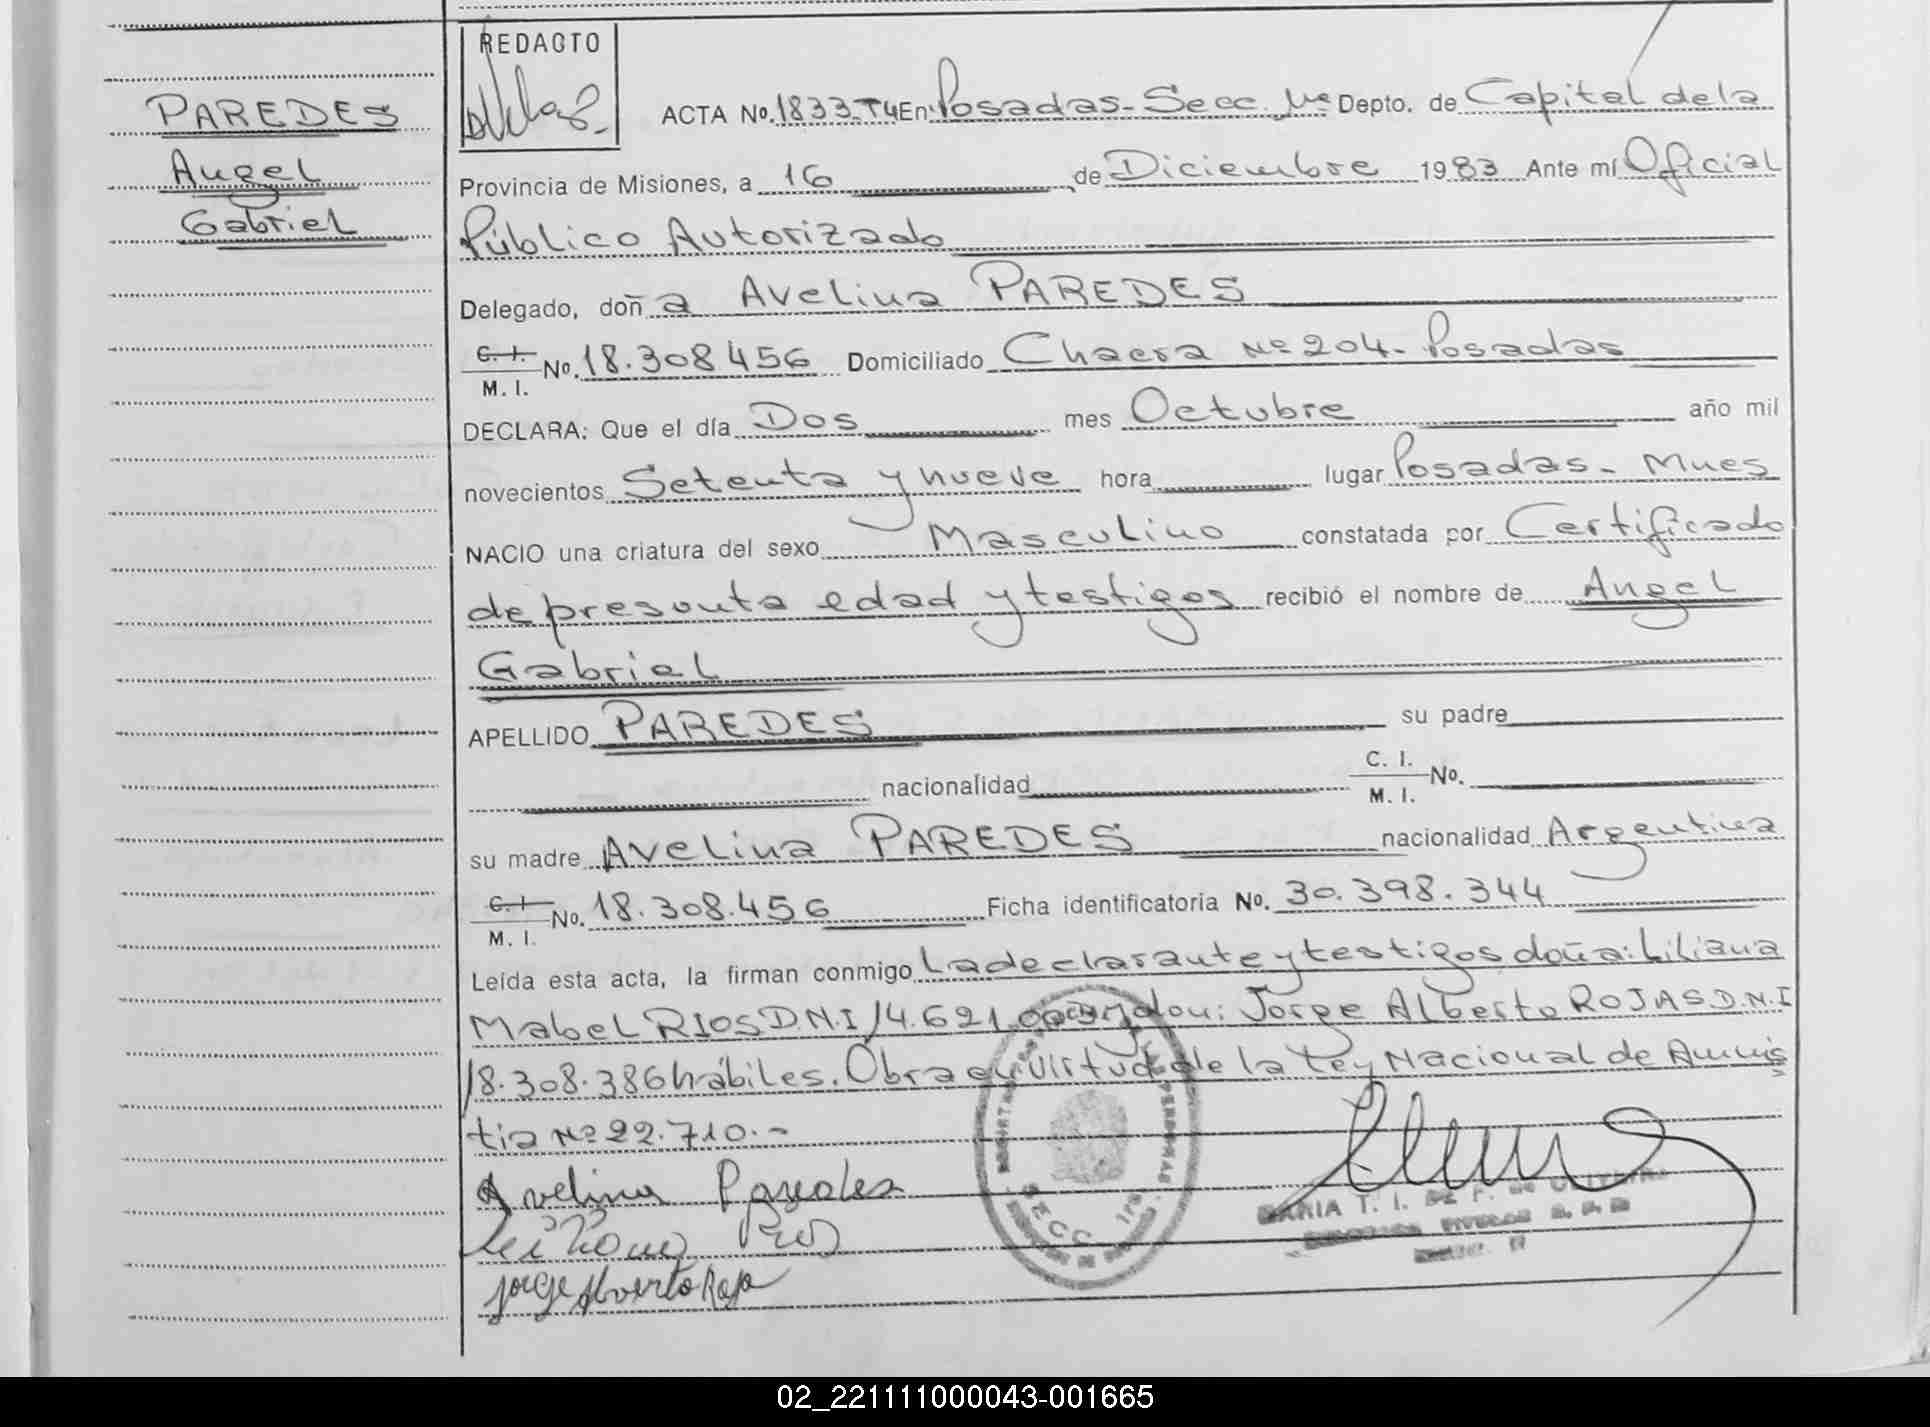 REDACTO
PAREDES
Angel
Gabriel
ACTA No. 1833-T4 En: Posadas-Secc. 1ra Depto. de Capital de la
Provincia de Misiones, a 16 de Diciembre 1983 Ante mí Oficial
Público Autorizado
Delegado, doña Avelina PAREDES
C. I.
M. I. No. 18.308.456 Domiciliado Chacra Nº 204- Posadas
DECLARA: Que el día Dos mes Octubre año mil
novecientos Setenta y nueve hora lugar Posadas- Mnes
NACIO una criatura del sexo Masculino constatada por Certificado
de presunta edad y testigos recibió el nombre de Angel
Gabriel
APELLIDO PAREDES su padre
nacionalidad C. I.
M. I. No.
su madre Avelina PAREDES nacionalidad Argentina
C. I.
M. I. No. 18.308.456 Ficha identificatoria No. 30.398.344
Leída esta acta, la firman conmigo La declarante y testigos doña: Liliana
Mabel RIOS D.N.I 14.621. y don: Jorge Alberto ROJAS D.N.I
18.308.386 hábiles. Obra en virtud de la Ley Nacional de Amnis
tia Nº 22.710.-
Avelina Paredes
Liliana Rios
Jorge Alberto Roja
SECC 1ra
MARIA T. I. DE F. de OLIVEIRA
02_221111000043-001665